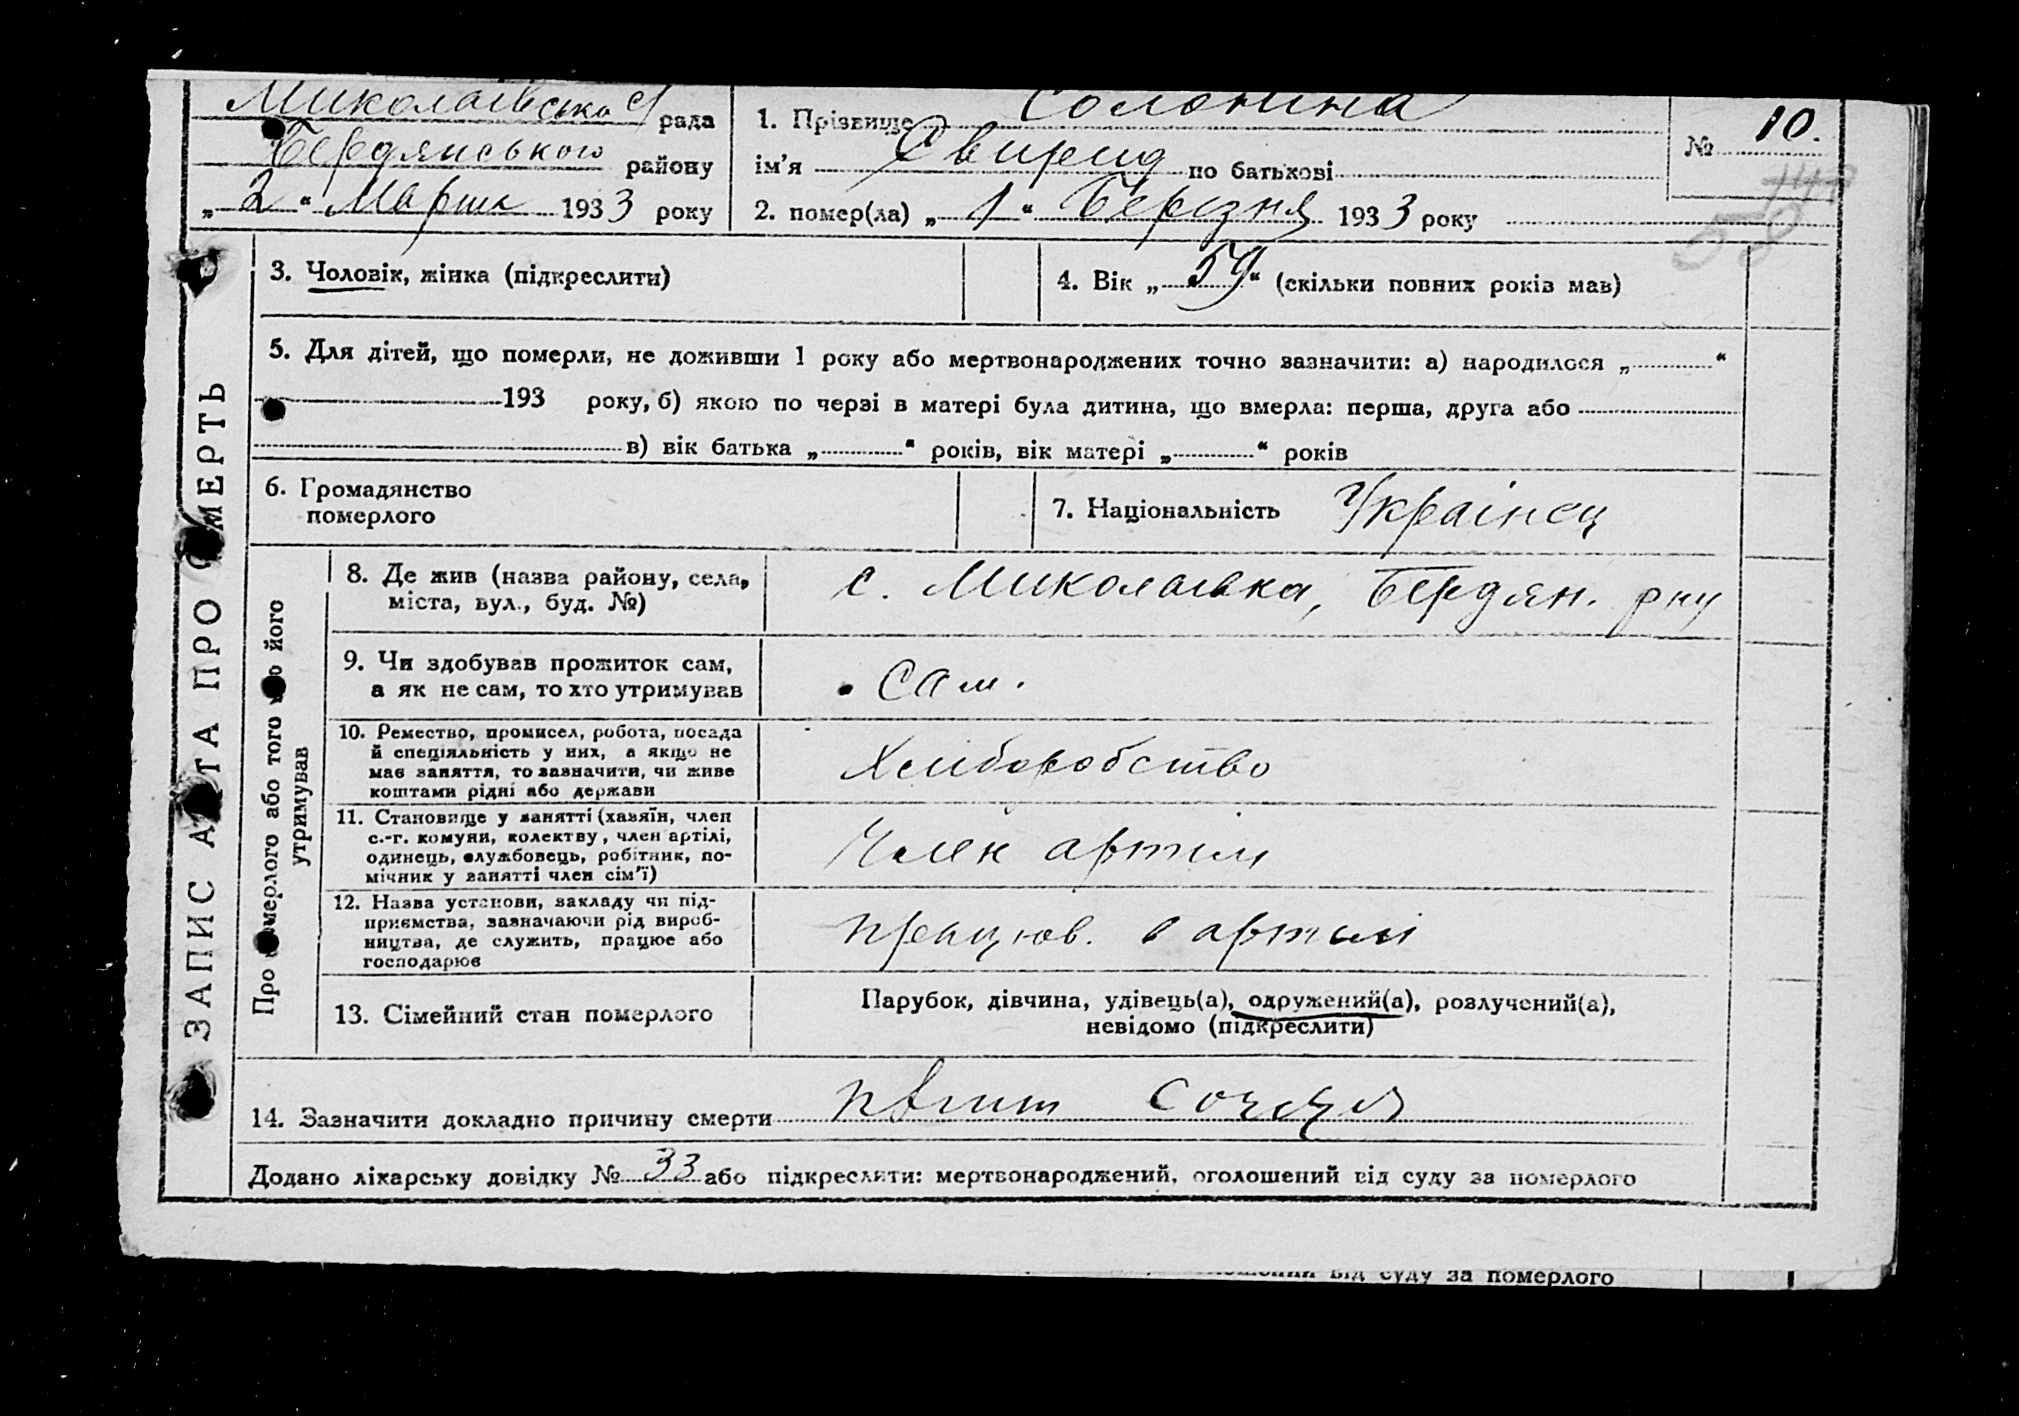 Миколаївсько с/рада
Бердянського району
„2“ Марта 1933 року
1. Прізвище Солонина
ім’я Свирид по батькові
2. помер(ла) „1“ Березня 1933 року
№ 10.
ЗАПИС АКТА ПРО СМЕРТЬ
3. Чоловік, жінка (підкреслити)
4. Вік „59“ (скільки повних років мав)
5. Для дітей, що померли, не доживши 1 року або мертвонароджених точно зазначити: а) народилося „ “
193 року, б) якою по черзі в матері була дитина, що вмерла: перша, друга або
в) вік батька „ “ років, вік матері „ “ років
6. Громадянство
померлого
7. Національність Українец
Про померлого або того хто його
утримував
8. Де жив (назва району, села,
міста, вул., буд. №)
с. Миколаївка, Бердян. рну
9. Чи здобував прожиток сам,
а як не сам, то хто утримував
Сам.
10. Ремество, промисел, робота, посада
й спеціяльність у них, а якщо не
має заняття, то зазначити, чи живе
коштами рідні або держави
Хлиборобство
11. Становище у занятті (хазяїн, член
с.-г. комуни, колектву, член артілі,
одинець, службовець, робітник, по-
мічник у занятті член сім’ї)
Член артили
12. Назва установи, закладу чи під-
приємства, зазначаючи рід вироб-
ництва, де служить, працює або
господарює
працюв. в артилі
13. Сімейний стан померлого
Парубок, дівчина, удівець(а), одружений(а), розлучений(а),
невідомо (підкреслити)
14. Зазначити докладно причину смерти
Додано лікарську довідку № 33 або підкреслити: мертвонароджений, оголошений від суду за померлого
від суду за померлого